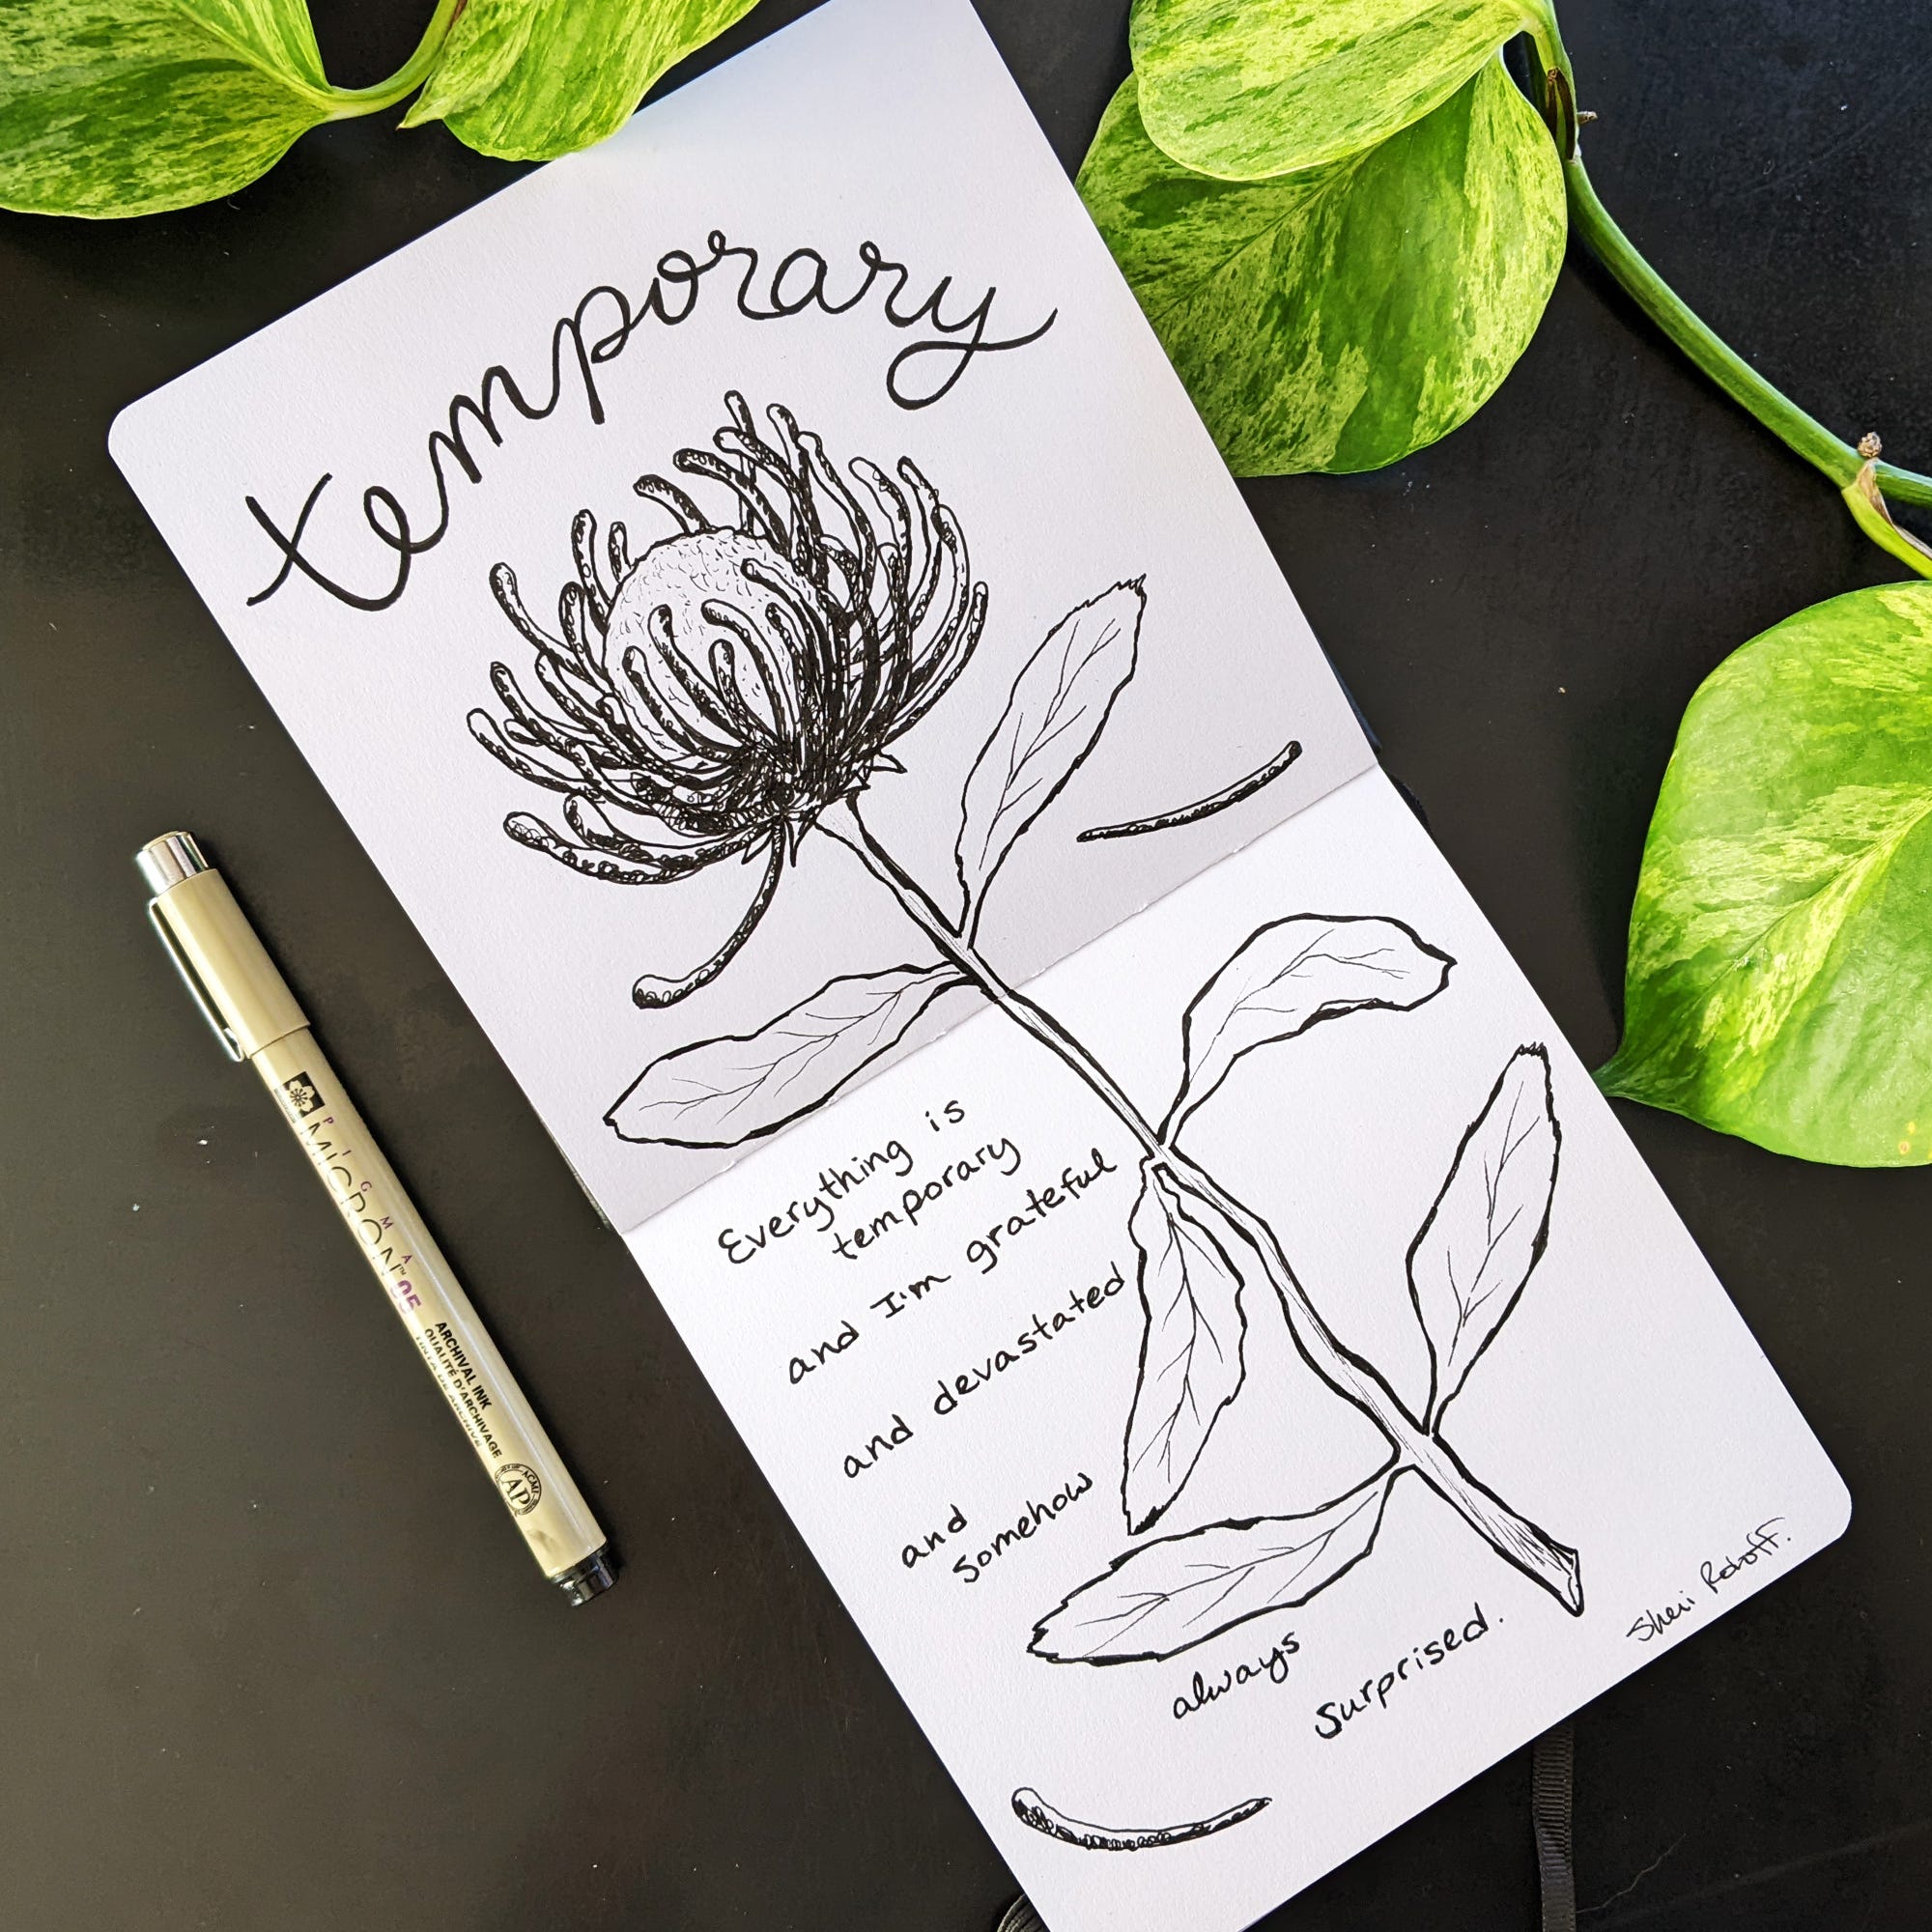 temporary
Everything is
temporary
and I'm grateful
and devastated
and
somehow
always
surprised.
Sheri Roloff.
PIGMA
MICRON™ 05
ARCHIVAL INK
QUALITÉ D'ARCHIVAGE
TINTA DE ARCHIVE
AP